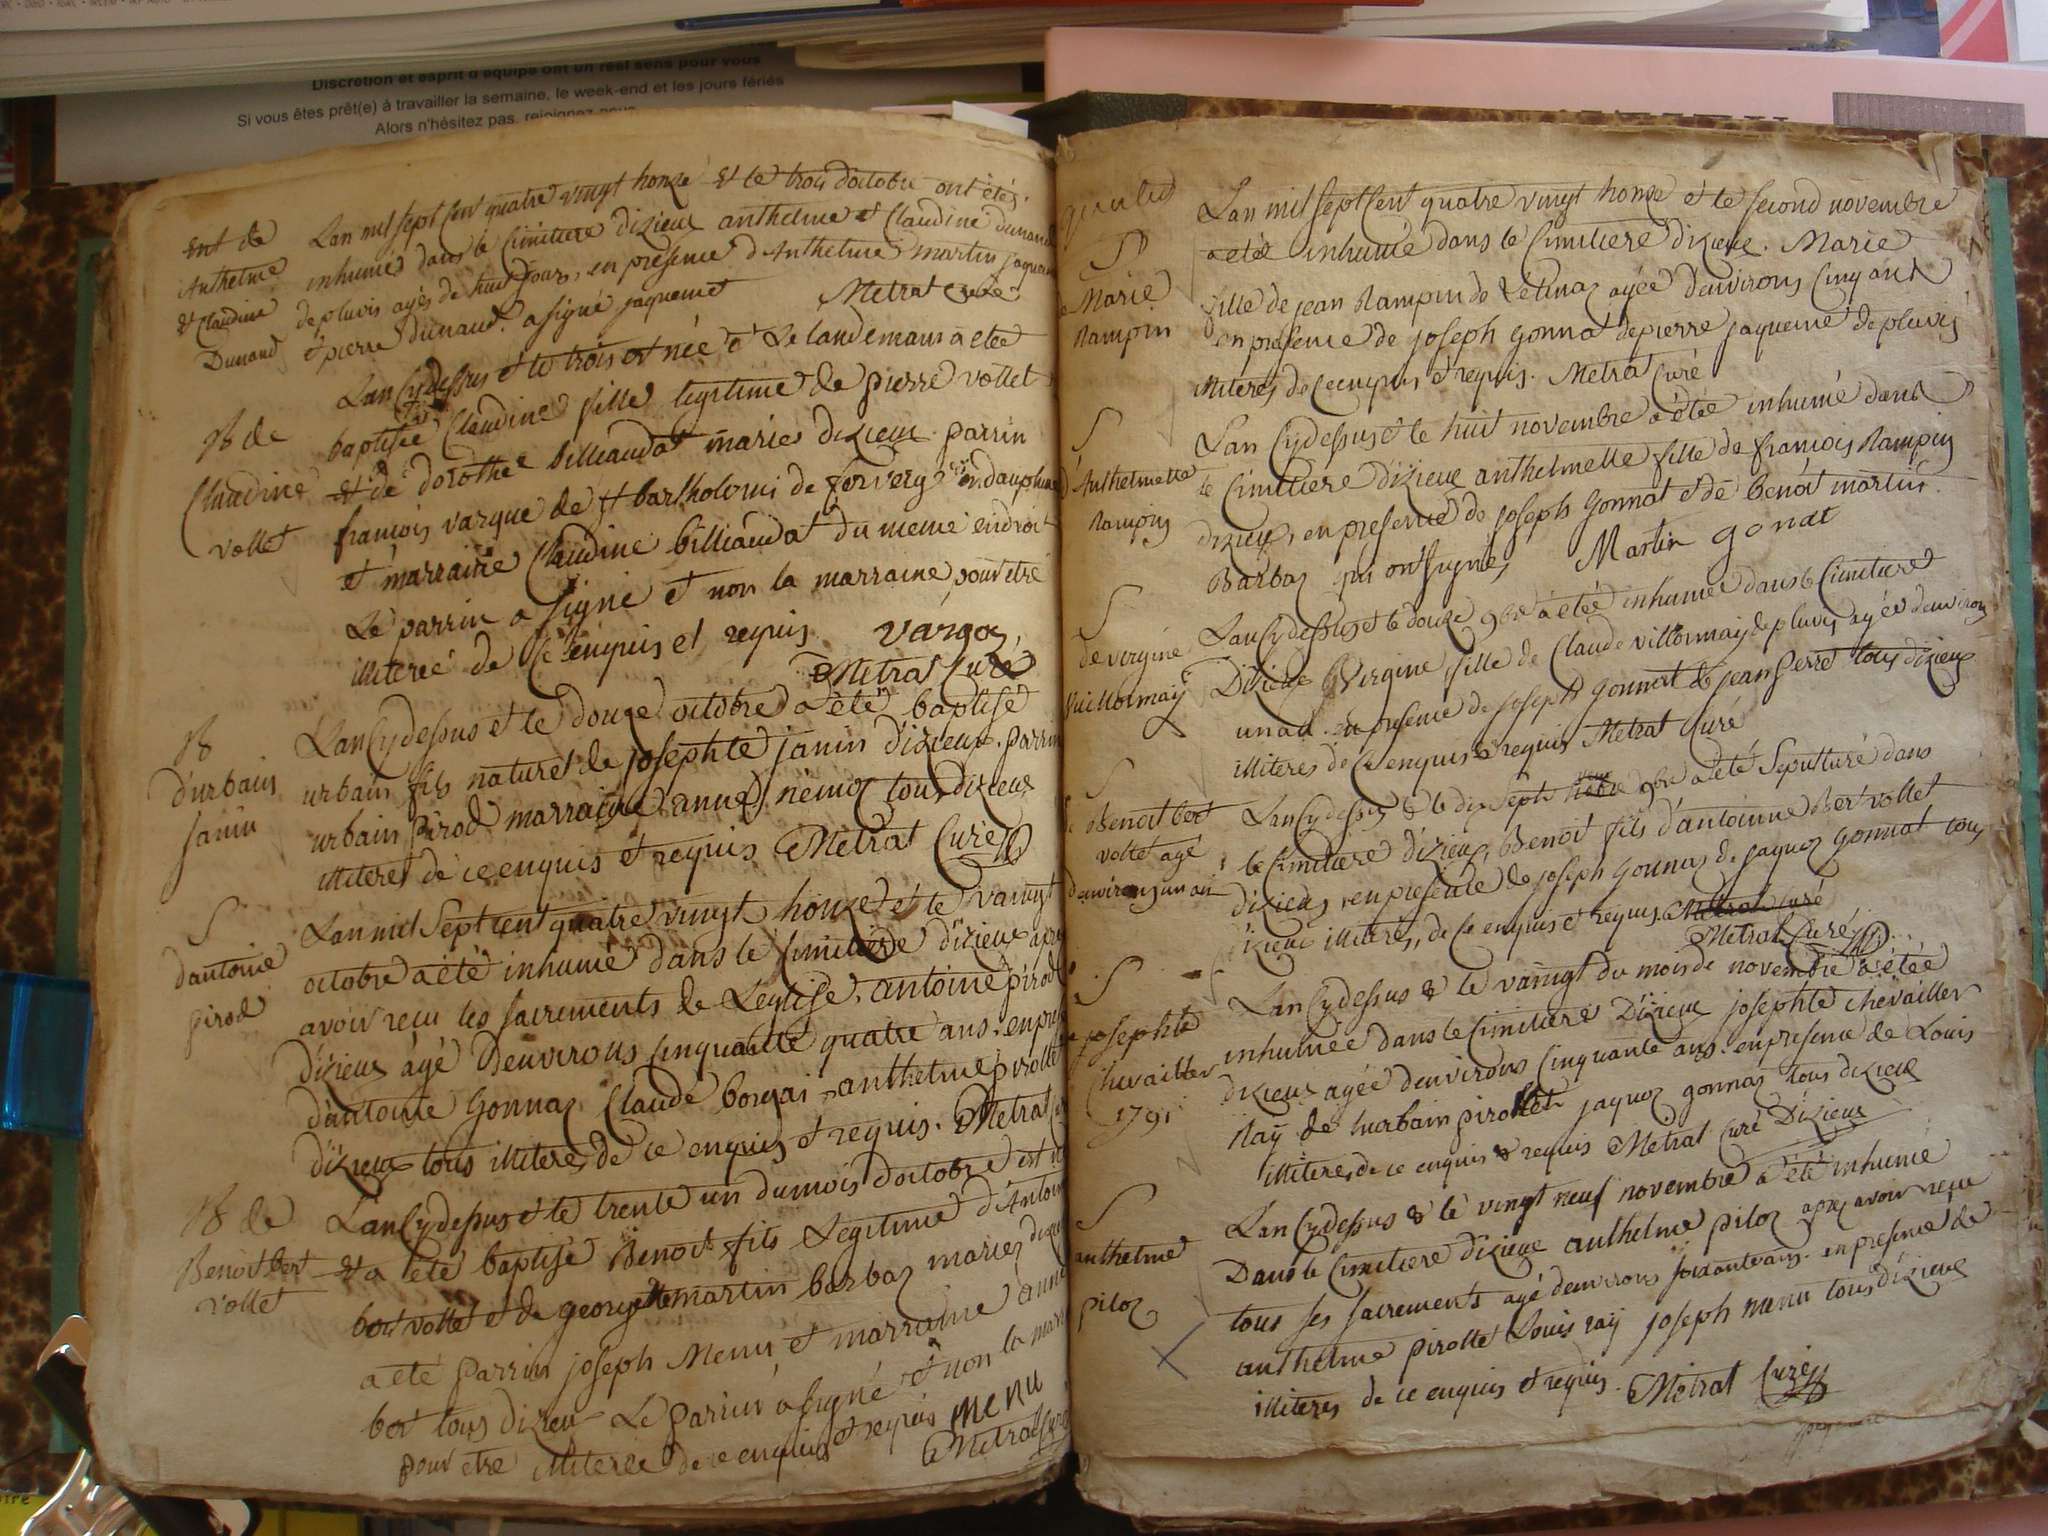 Discrétion et esprit d'équipe ont un réel sens pour vous
Si vous êtes prêt(e) à travailler la semaine, le week-end et les jours fériés
Alors n'hésitez pas, rejoignez-nous
Ent de
Anthelme
& Claudine
Dunand
Lan mil sept cent quatre vingt honze et le trois doctobre ont étés
inhumés dans le Cimitiere dizieue anthelme et Claudine dunand
de pluvis agés de huit jours, en présence d'Anthelme martin jaquem
& pierre dunand. a signé jaquemet Metrat curé
B de
Claudine
vollet
Lan Cydessus et le trois est née et Le landemain a eteé
baptisée Claudine fille legitime de pierre vollet
et de dorothée billiaudat mariés dizieue parrin
francois varque de st bartholomi de en dauphiné
et marraine Claudine billiaudat du meme endroit
Le parrin a signé et non la marraine pour etre
illiterée de ce enquis et requis. vargoz
Metrat Curé
B
d'urbain
janin
Lan Cydessus et le douze octobre a été baptisé
urbain fils naturel de josephte janin dizieue. parrin
urbain pirod marraine anne némoz tous dizieue
illiteres de ce enquis et requis Metrat Curé
S
dantoine
pirod
Lan mil Sept cent quatre vingt honze et le vaingt
octobre a été inhumé dans le Cimitiere dizieue apre
avoir recu les sacrements de Leglise, antoine pirod
dizieue âgé denvirons cinquante quatre ans. en pres
dantoine Gonnaz Claude bongai anthelme pirollet
dizieue tous illiteres de ce enquis et requis. Metrat
B de
Benoit bert
vollet
Lan Cydessus et le trente un du mois doctobre est
& a été baptisé Benoit fils Legitime d'Antoin
bert vollet et de georgette martin barbaz mariez dizieu
a été parrin joseph Menu et marraine anne
bert tous dizieu Le parrin a signé et non la marr
pour etre illiterée de ce enquis et requis Menu
Metrat Curé
S
Marie
Rampin
Lan mil sept Cent quatre vingt honze et le second novembre
a etée inhumée dans le Cimitiere dizieue. Marie
fille de jean Rampin de Létinaz agée denvirons cinq ans
en presence de joseph gonnat de pierre jaquemé de pluvis
illiteres de ce enquis & requis. Metrat Curé
S
d'Anthelmette
Rampin
Lan Cydessus et le huit novembre a étée inhumé dans
le Cimitiere dizieue anthelmette fille de francois Rampin
dizieue, en presence de joseph Gonnat et de benoit martin
Barbaz qui ont signé, Martin gonat
S
de virgine
Villormay
Lan Cydessus et le douze 9bre a étée inhumée dans le Cimitiere
Dizieue Virgine fille de Claude villormay de pluvis agée denvirons
un an en presence de joseph Gonnat & jean perret tous dizieue
illiteres de ce enquis & requis Metrat Curé
S
Benoit bert
vollet agé
denvirons un an
Lan Cydessus & le dix Sept 9bre a été Sepulturé dans
le Cimitiere dizieue, Benoit fils d'antoinne Bert vollet
dizieue, en presence de joseph Gonnaz de jaquoz Gonnat tous
dizieue illiteres, de ce enquis et requis Metrat Curé
Metrat Curé
S
josephte
Chevallier
1791
Lan Cydessus & le vaingt du mois de novembre a étée
inhumée dans le Cimitiere Dizieue josephte chevallier
dizieue agée denvirons cinquante ans. en presence de Louis
Raÿ de hurbain pirollet jaquoz gonnaz tous dizieue
illiteres de ce enquis & requis Metrat Curé Dizieue
S
anthelme
piloz
Lan Cydessus & le vingt neuf novembre a été inhumé
Dans le Cimitiere dizieue anthelme piloz apres avoir recu
tous ses sacrements agé denvirons soixante ans. en presence de
anthelme pirollet Louis raÿ joseph menu tous dizieue
illiteres de ce enquis et requis. Metrat Curé